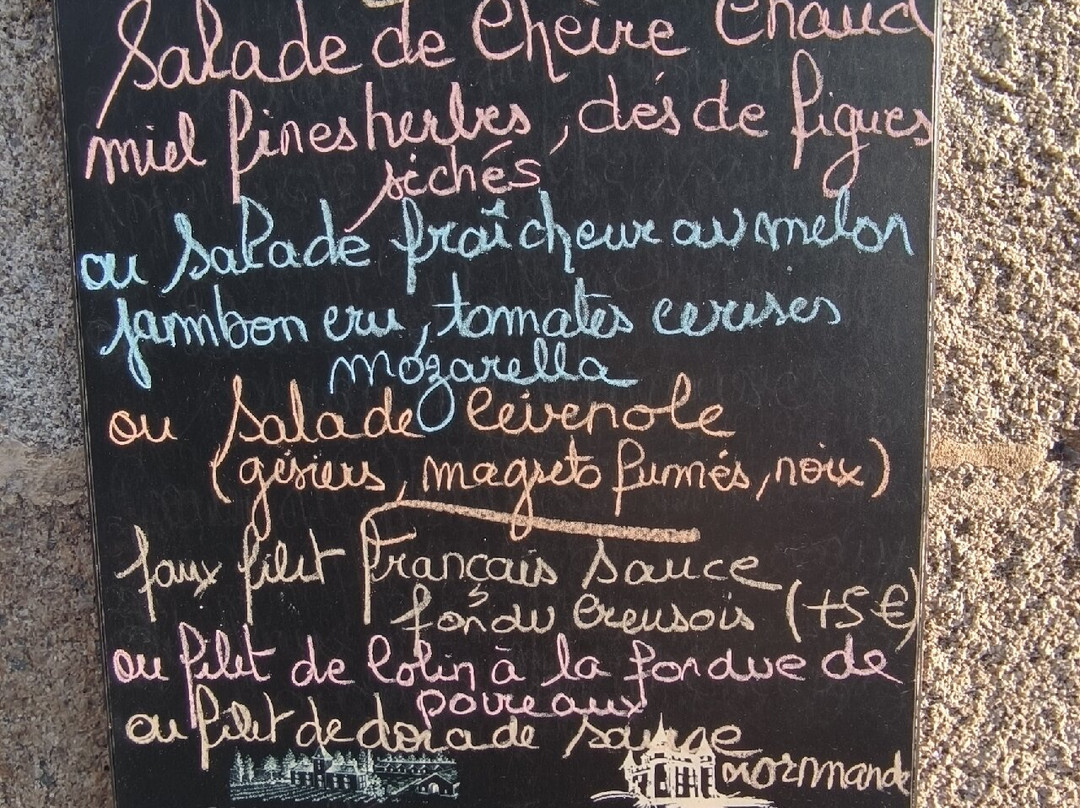 Salade de Chèvre Chaud
miel fines herbes, dés de figues
séchés
ou Salade fraîcheur au melon
jambon cru, tomates cerises
mozarella
ou Salade Cévenole
(gésiers, magrets fumés, noix)
faux filet Français Sauce
fondu Creusois (+5€)
ou filet de Colin à la fondue de
poireaux
ou filet de dorade sauce
normande